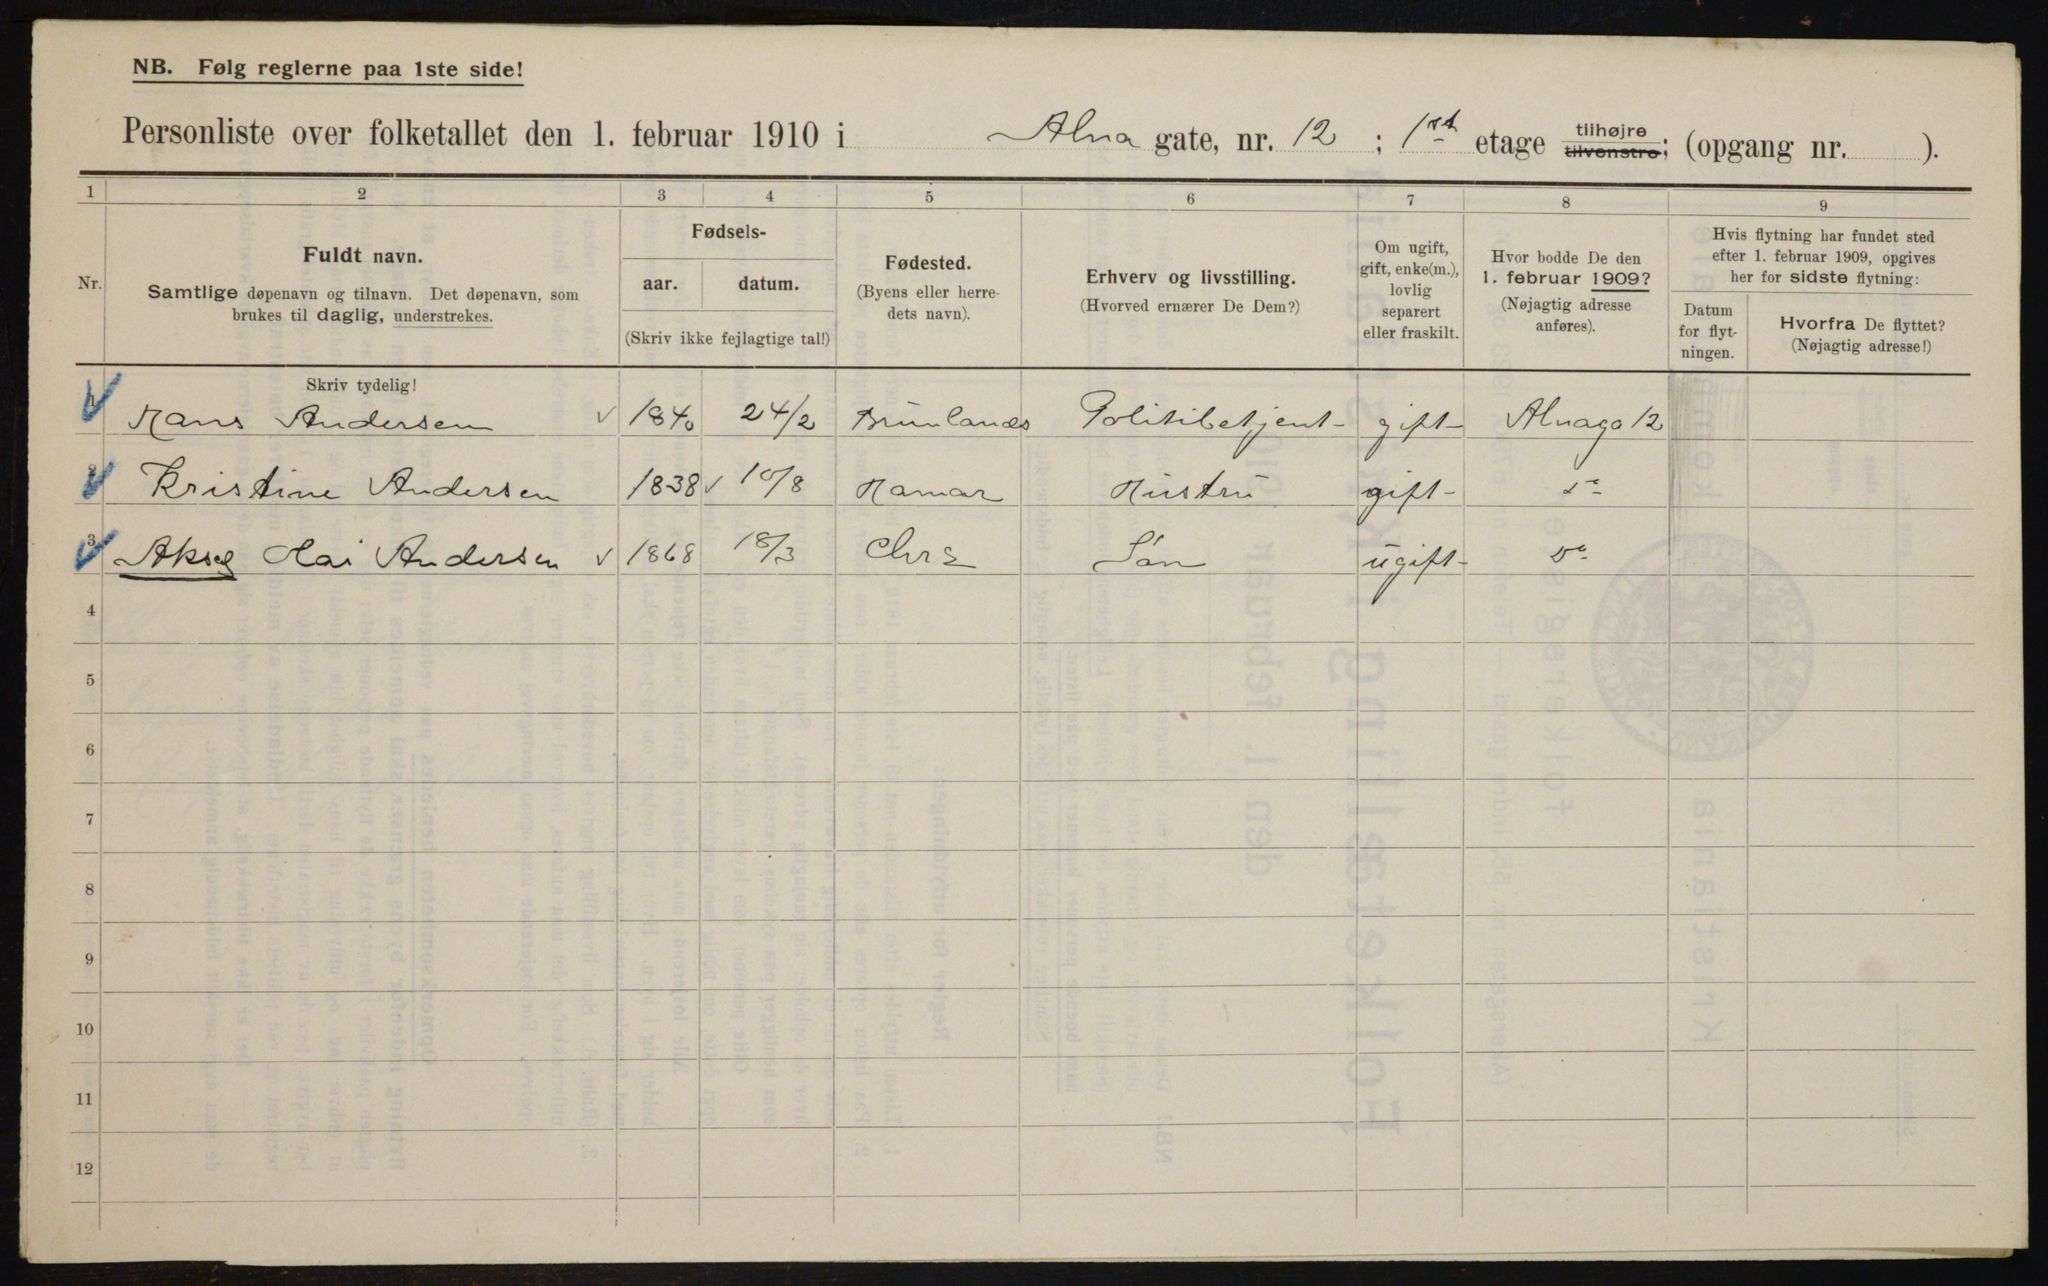 NB. Følg reglerne paa 1ste side!
Personliste over folketallet den 1. februar 1910 i Alna gate, nr. 12 ; 1st etage tilhøjre tilvenstre; (opgang nr. ).
1 2 3 4 5 6 7 8 9
Nr.
Fuldt navn.
Samtlige døpenavn og tilnavn. Det døpenavn, som
brukes til daglig, understrekes.
Fødsels-
aar. datum.
(Skriv ikke fejlagtige tal!)
Fødested.
(Byens eller herre-
dets navn).
Erhverv og livsstilling.
(Hvorved ernærer De Dem?)
Om ugift,
gift, enke(m.),
lovlig
separert
eller fraskilt.
Hvor bodde De den
1. februar 1909?
(Nøjagtig adresse
anføres).
Hvis flytning har fundet sted
efter 1. februar 1909, opgives
her for sidste flytning:
Datum
for flyt-
ningen.
Hvorfra De flyttet?
(Nøjagtig adresse!)
Skriv tydelig!
1 Hans Andersen 1840 24/2 Brunlanes Politibetjent gift Alnaga 12
2 Kristine Andersen 1838 10/8 Hamar Hustru gift do
3 Aksel Olai Andersen 1868 18/3 Chra Søn ugift do
4
5
6
7
8
9
10
11
12